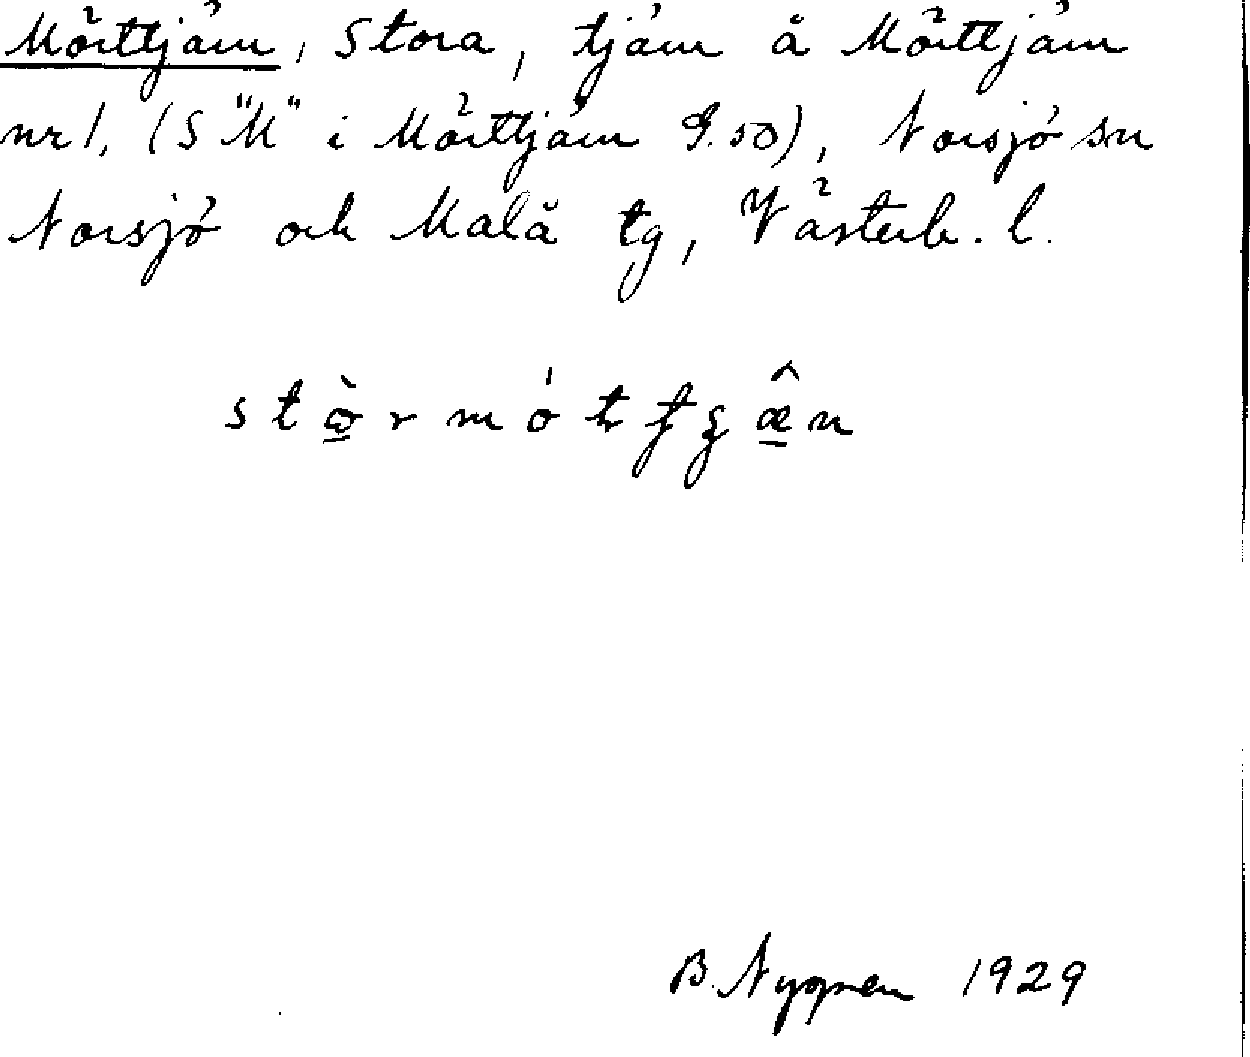 Mörttjärn, Stora, tjärn å Mörttjärn
nr 1, (S "M" i Mörttjärn G.50), Norsjö sn
Norsjö och Malå tg, Västerb. l.
1929